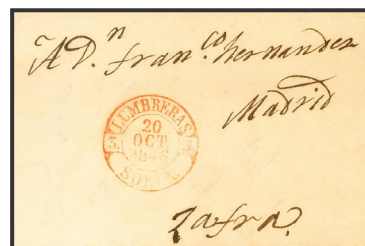 A D.n Fran.co hernandez
Madrid
LUMBRERAS
20
OCT
SORIA
Zafra.